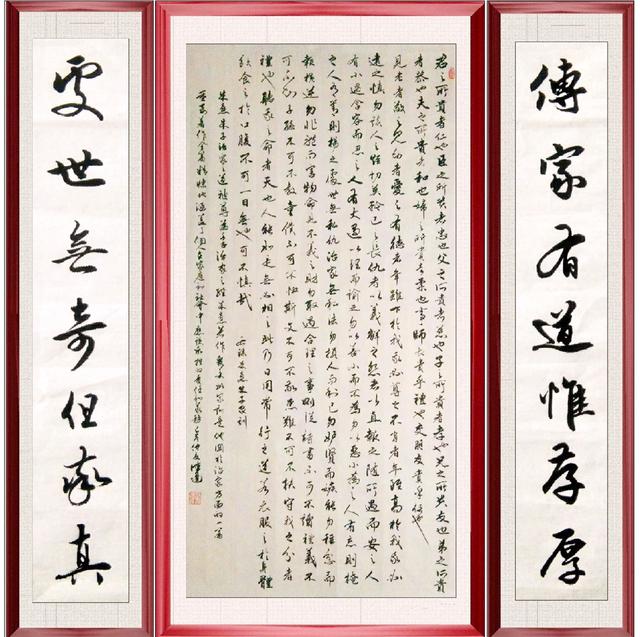 傳家有道惟存厚
君之所貴者仁也臣之所貴者忠也父之所貴者慈也子之所貴者孝也兄之所貴者友也弟之所貴
者恭也夫之所貴者和也婦之所貴者柔也事師長貴乎禮也交朋友貴乎信也
見老者敬之見幼者愛之有德者年雖下於我必尊之不肖者年雖高於我必
遠之慎勿談人之短切莫矜己之長仇者以義解之怨者以直報之隨所遇而安之人
有小過含容而忍之人有大過以理而諭之勿以善小而不為勿以惡小為之人有惡則掩
之人有善則揚之處世無私仇治家無私法勿損人而利己勿妒賢而嫉能勿稱忿而
報橫逆勿非禮而害物命見不義之財勿取遇合理之事則從詩書不可不讀禮義不
可不知子孫不可不教童僕不可不恤斯文不可不敬患難不可不扶守我之分者
禮也聽我之命者天也人能如是天必相之此乃日用常行之道若衣服之於身體
飲食之於口腹不可一日無也可不慎哉
朱熹
处世無奇但率真